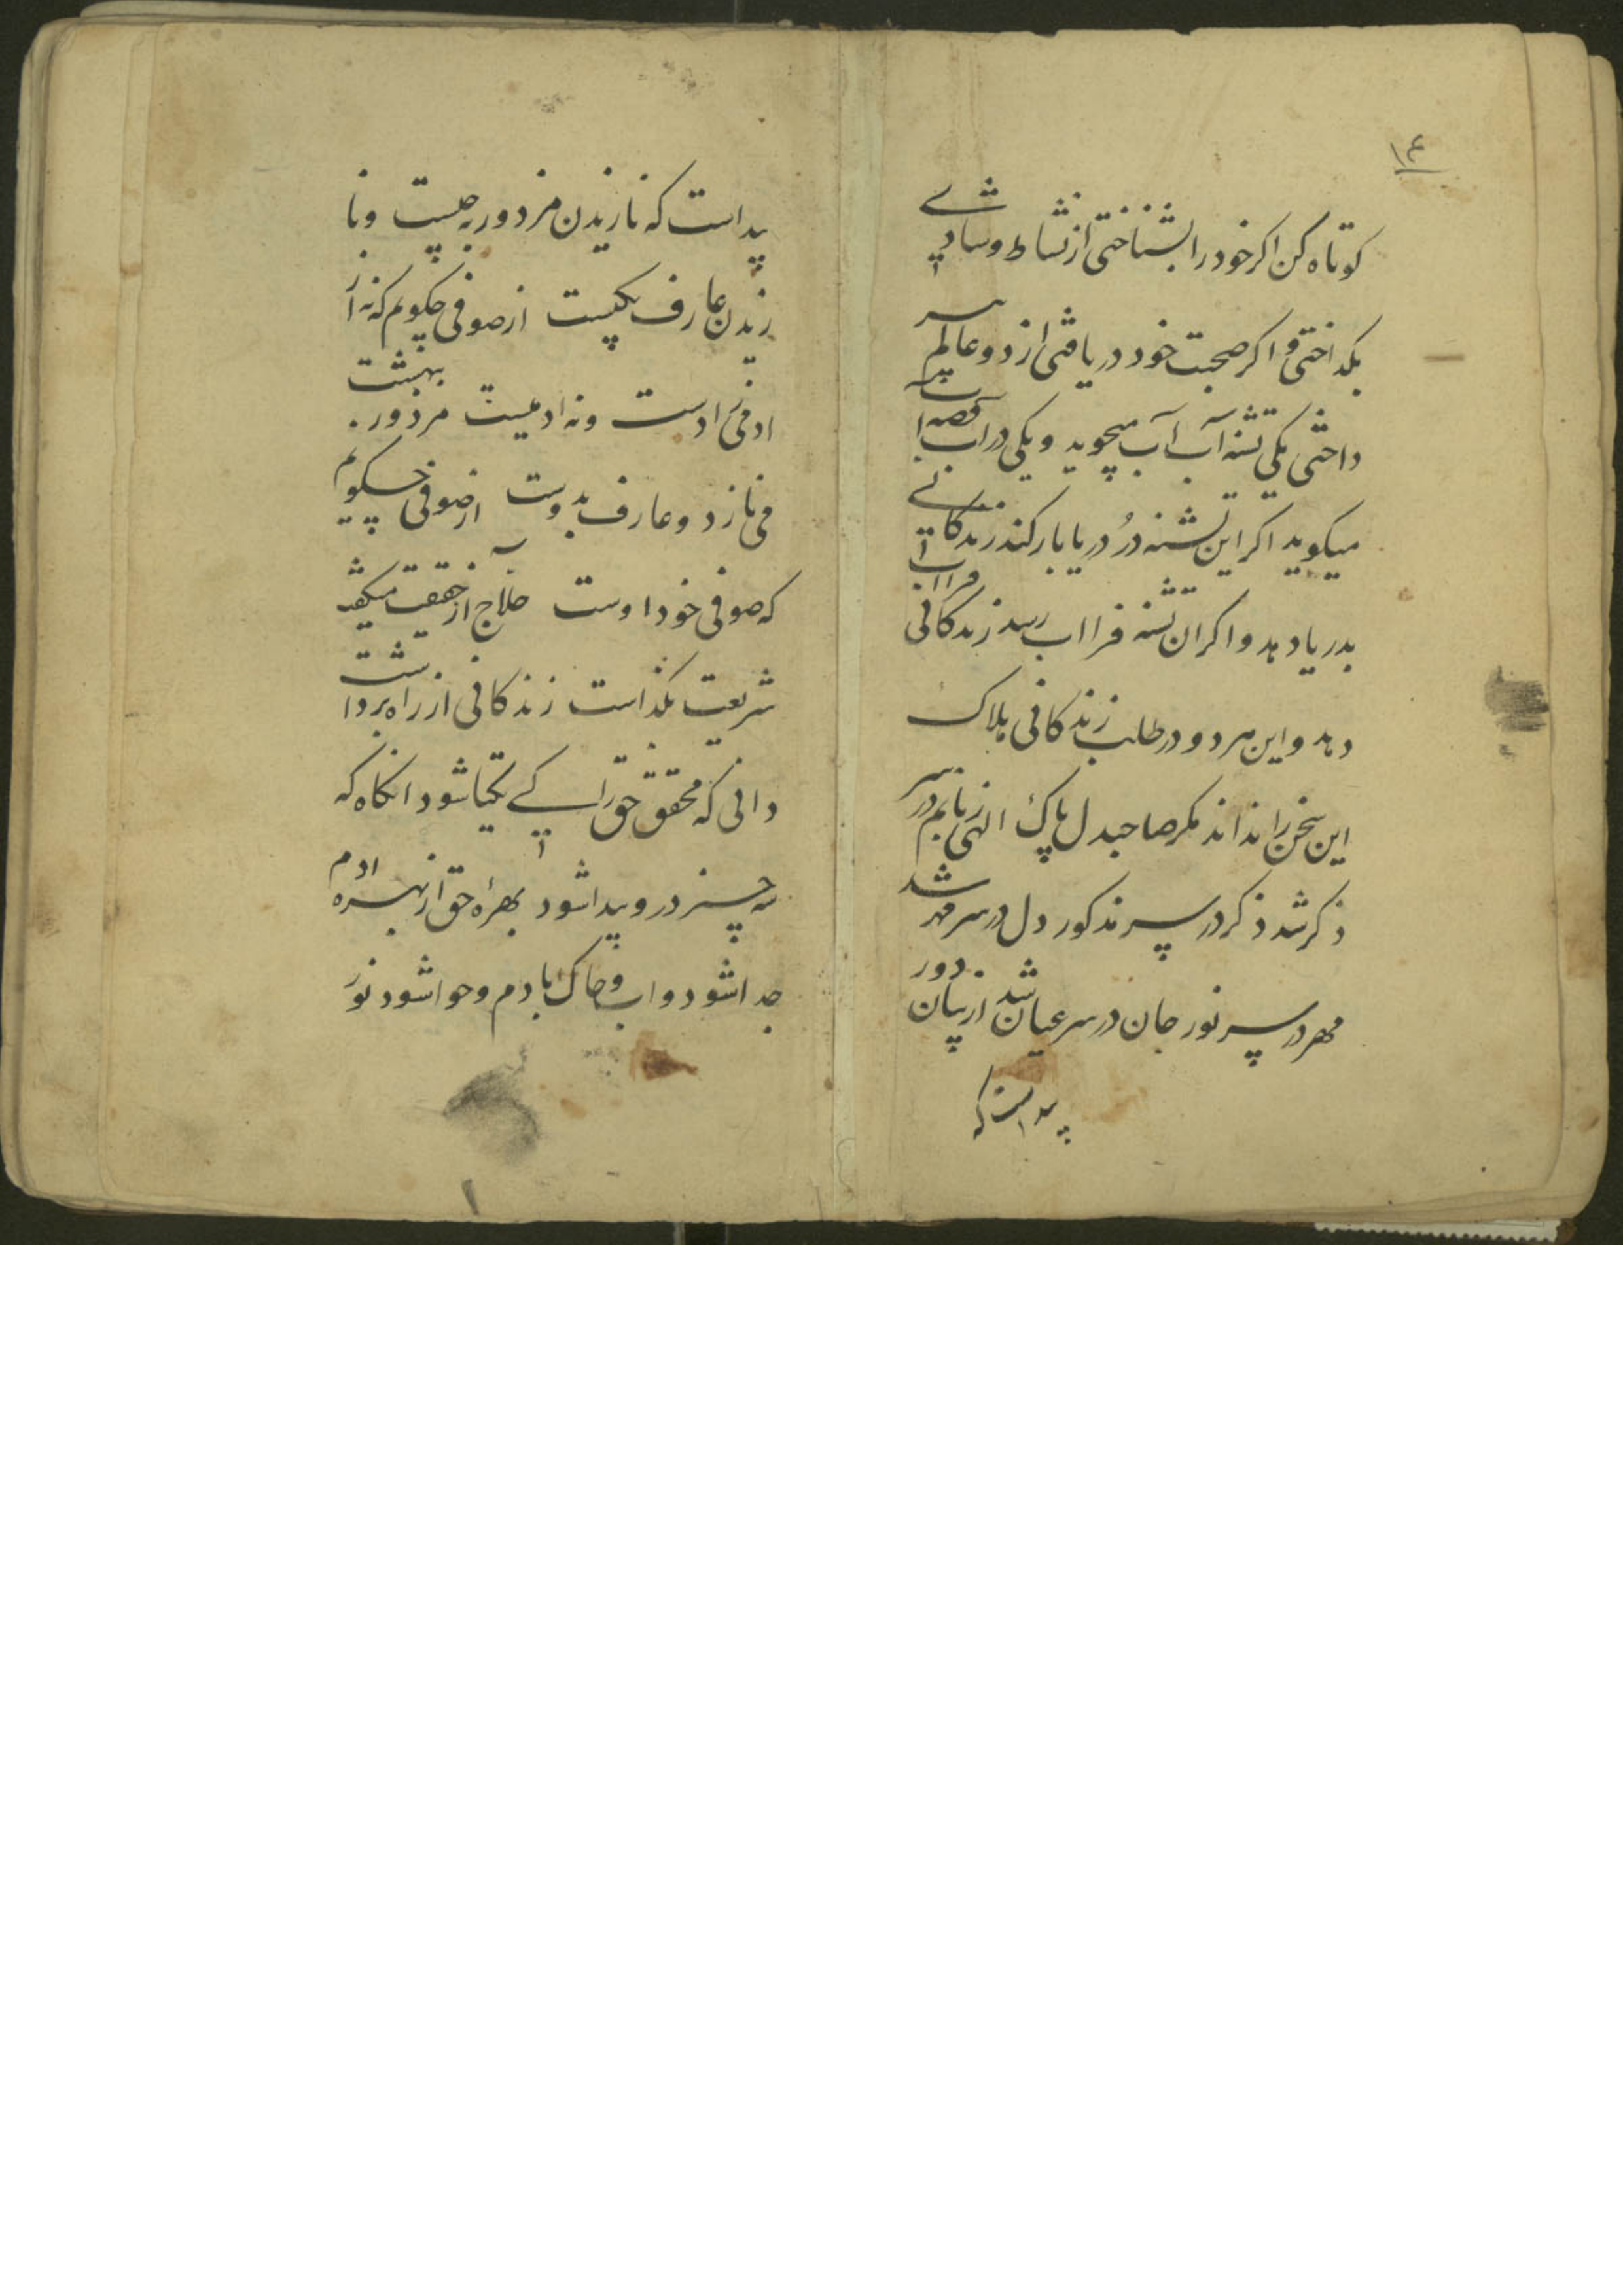 ۱۴
کوتاه کن اکر خود را بشناختی از نشاط و شادی
بکداختی و اکر صحبت خود دریافتی از دو عالم سر
داختی یکی تشنه آب آب میجوید و یکی در آب قصه
میکوید اکر این تشنه در دریا بار کند زندکانی
بدریا دهد و اکر ان تشنه فرا اب رسد زندکانی فرا اب
دهد و این هر دو در طلب زندکانی هلاک
این سخن را نداند مکر صاحبدل پاک الهی زبانم در سر
ذکر شد ذکر در سر مذکور دل در سر مهر شد
مهر در سر نور جان در سر عیان شد از بیان دور
پیداست که
پیداست که نازیدن مزدور بچیست و نا
زیدن عارف بکیست از صوفی چکویم که نه از
ادمی زادست و نه ادمیست مزدور ببهشت
می نازد و عارف بدوست از صوفی چکویم
که صوفی خود اوست حلاج از حقیقت میکفت
شریعت بکذاشت زندکانی از راه برداشت
دانی که محقق حق را کے یکتا شود انکاه که
سه چیز در و پیدا شود بهرهٔ حق از بهره ادم
جدا شود و اب و خاک با ادم و حوا شود نور